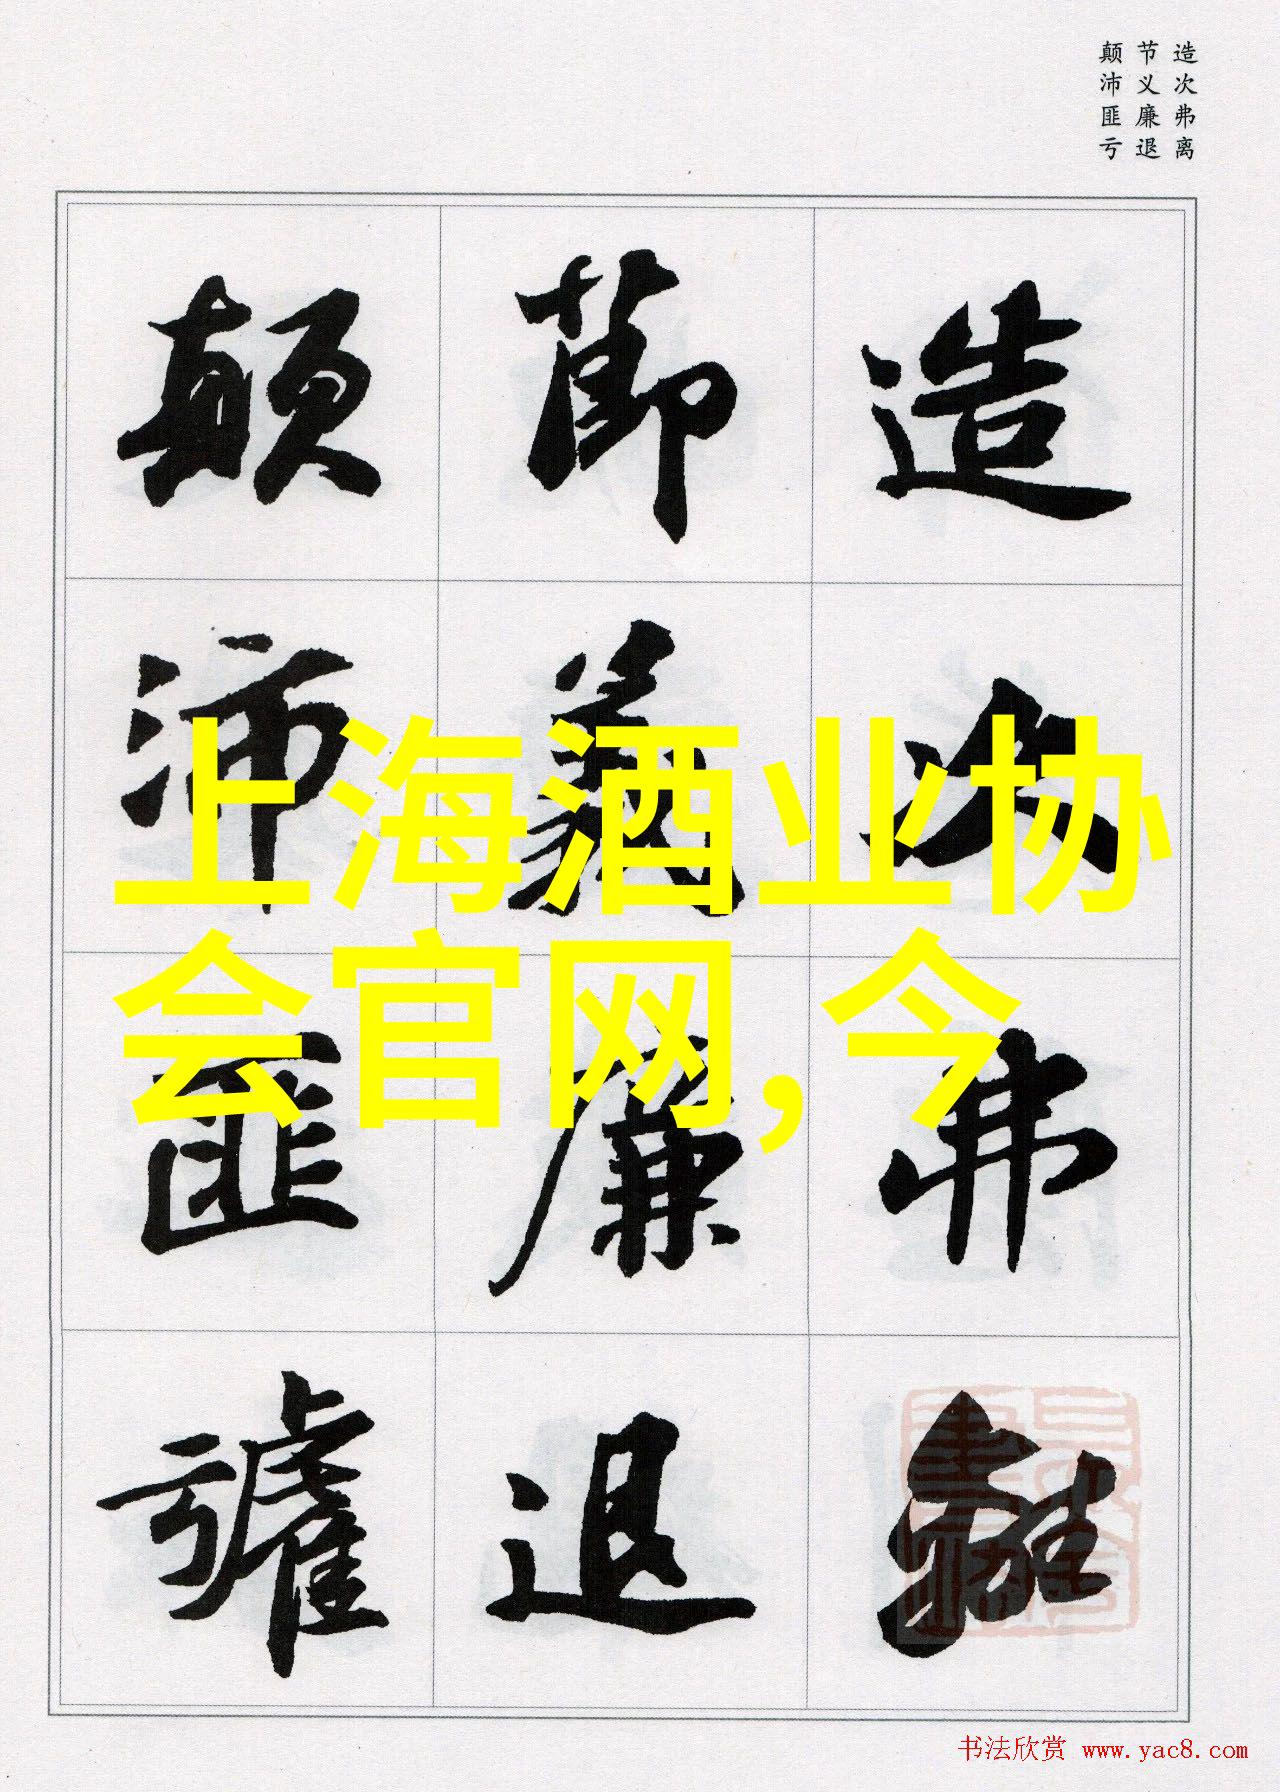 造次弗离
节义廉退
颠沛匪亏
造次弗離
節義廉退
顛沛匪虧
上海酒业协
会官网,今
书法欣赏 www.yac8.com